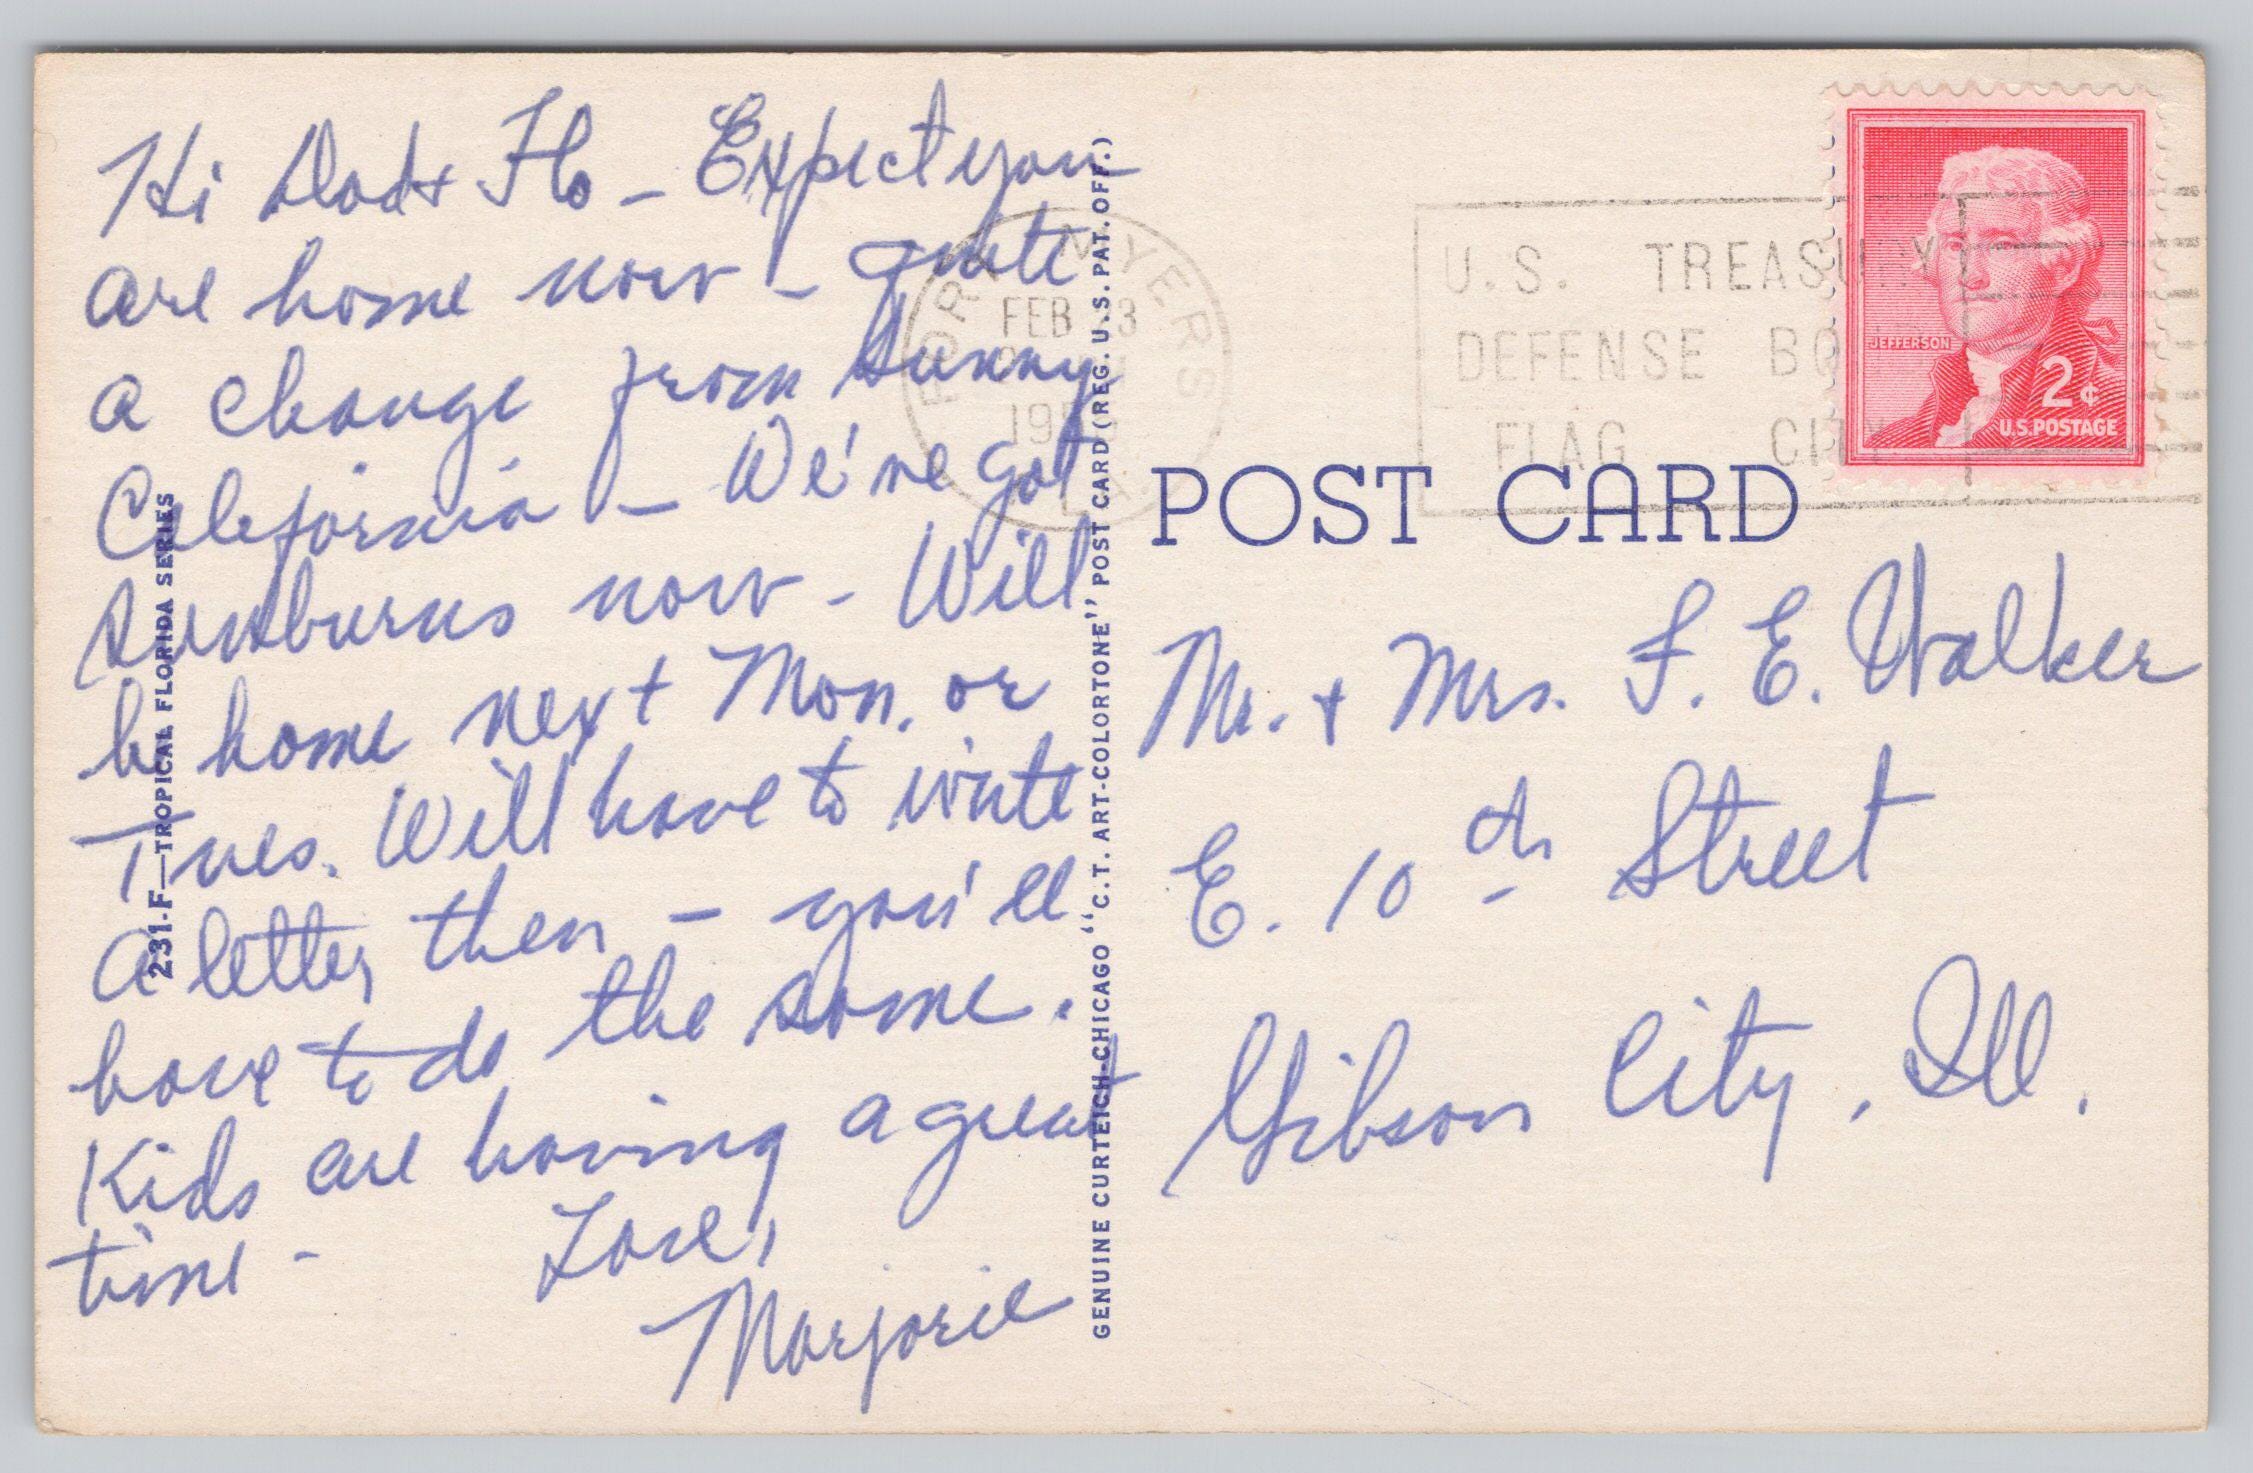 Hi Dad & Flo – Expect you
are home now – quite
a change from Sunny
California – We've got
Sunburns now – Will
be home next Mon. or
Tues. Will have to write
a letter then – you'll
have to do the same.
Kids are having a great
time –
Love,
Marjorie
231-F—TROPICAL FLORIDA SERIES
GENUINE CURTEICH-CHICAGO "C.T. ART-COLORTONE" POST CARD (REG. U.S. PAT. OFF.)
FORT MYERS
FEB
U.S. TREASURY
DEFENSE
FLAG CITY
JEFFERSON
2¢
U.S. POSTAGE
POST CARD
Mr. & Mrs. F. E. Walker
E. 10th Street
Gibson City, Ill.